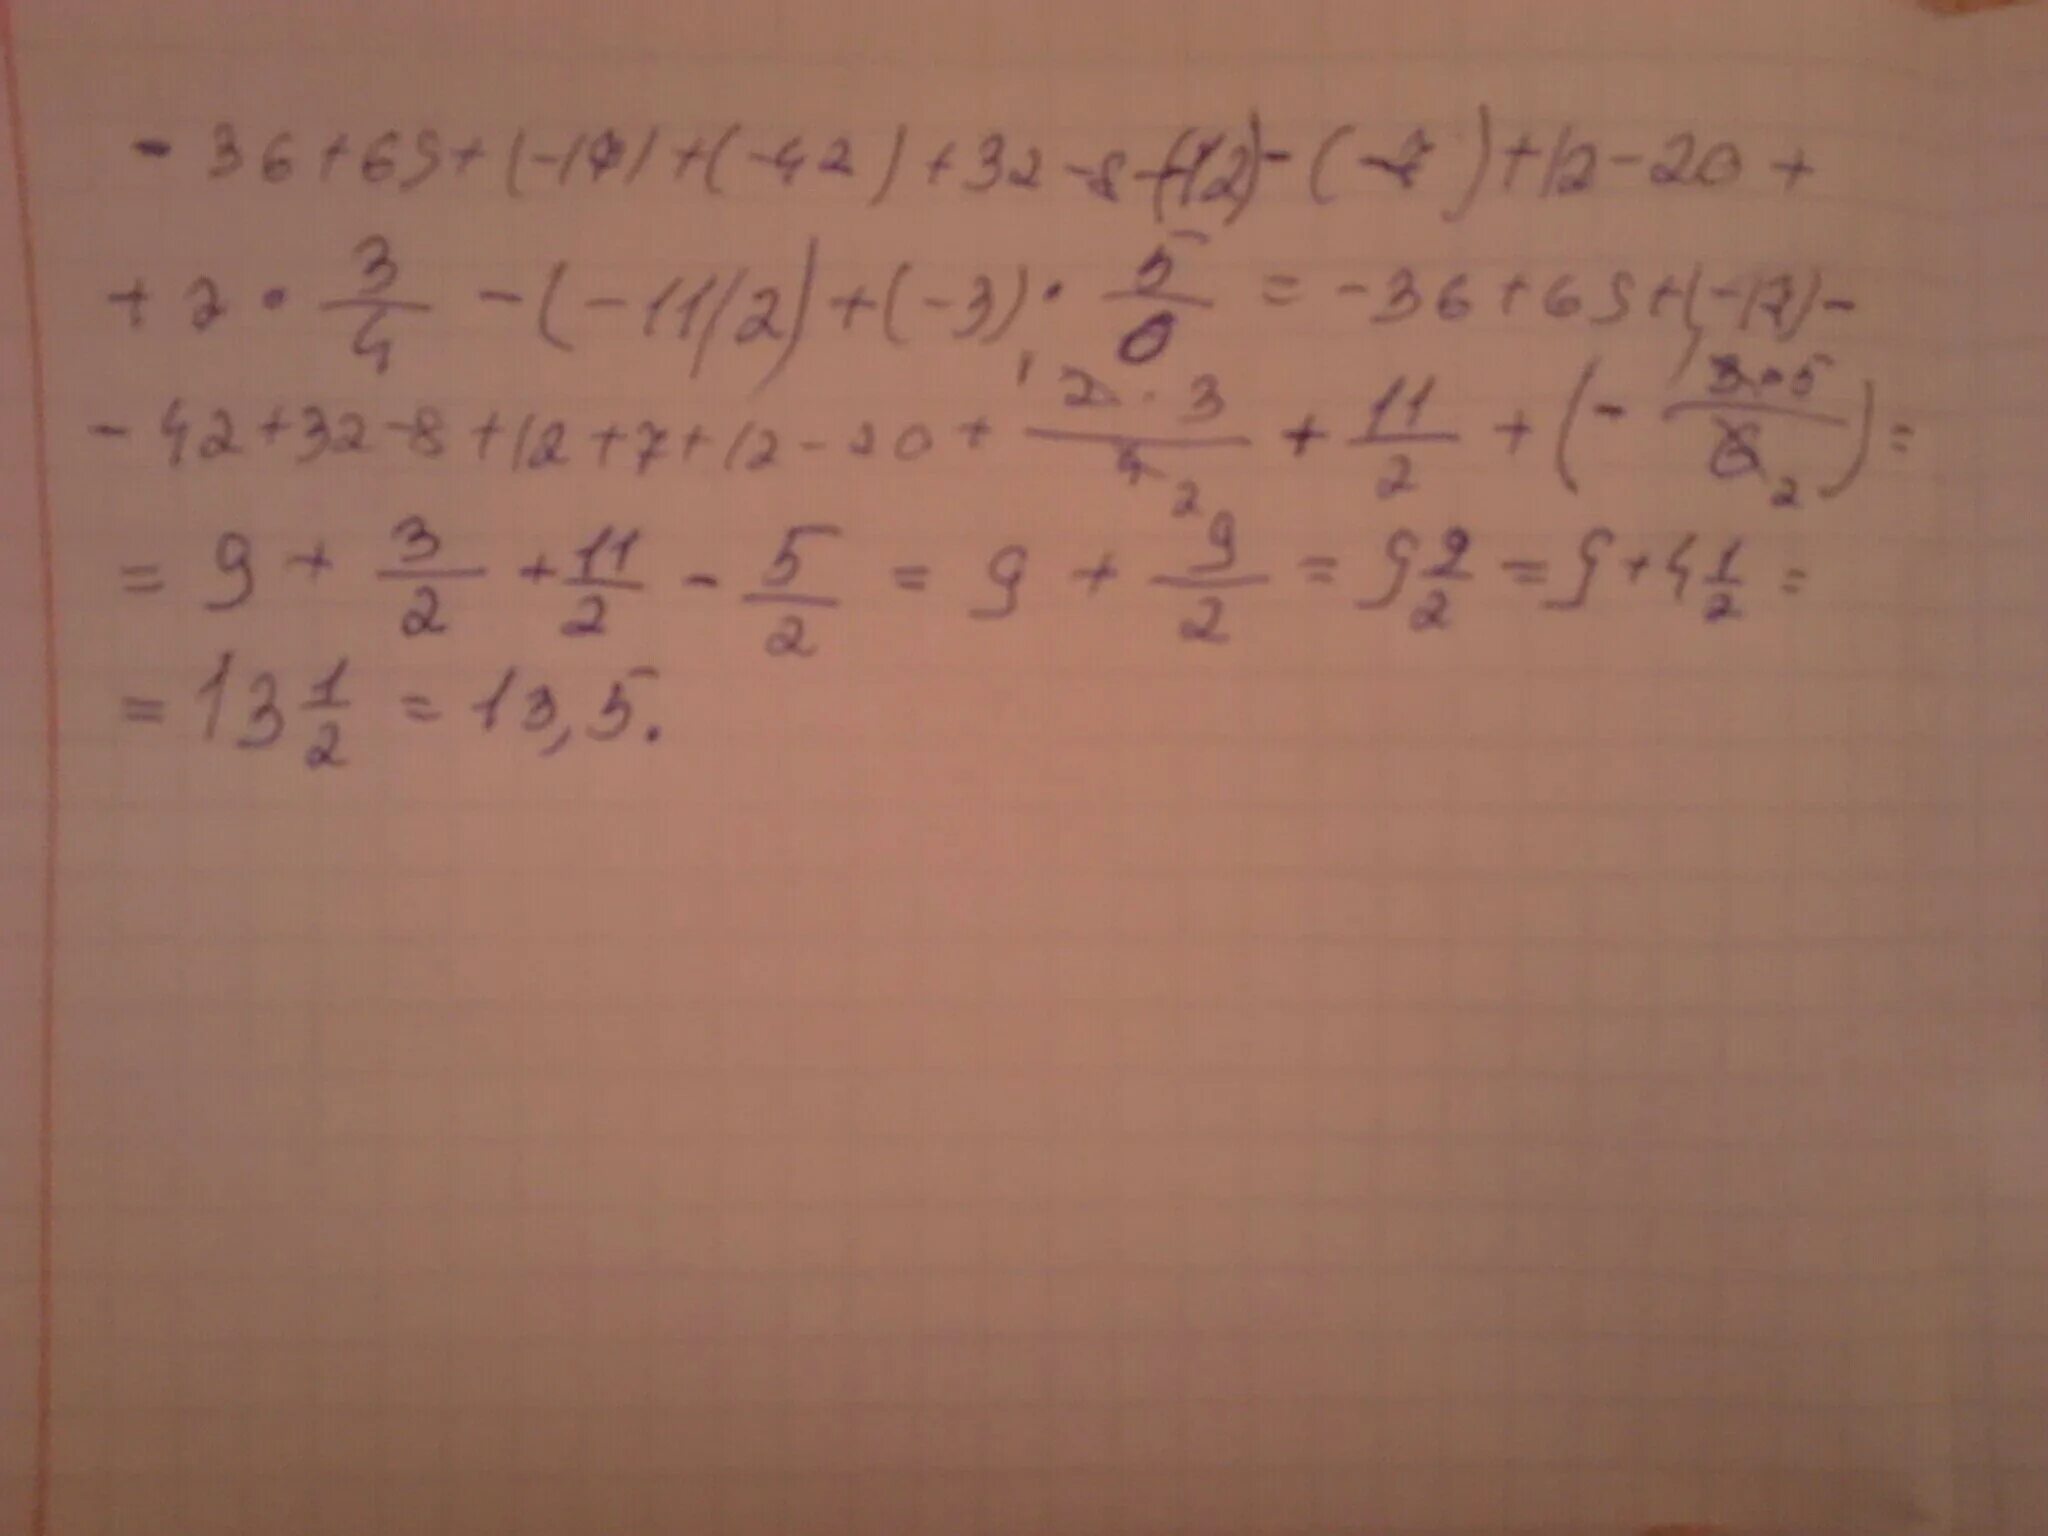 - 36 + 69 + (-17) + (-42) + 32 - 8 - (-12) - (-7) + 12 - 20 +
+ 2 · 3/4 - (-11/2) + (-3) · 5/6 = - 36 + 69 + (-17) -
- 42 + 32 - 8 + 12 + 7 + 12 - 20 + 2 · 3/4 2 + 11/2 + (- 3 · 5/6 2) =
= 9 + 3/2 + 11/2 - 5/2 = 9 + 9/2 = 9 9/2 = 9 + 4 1/2 =
= 13 1/2 = 13,5.